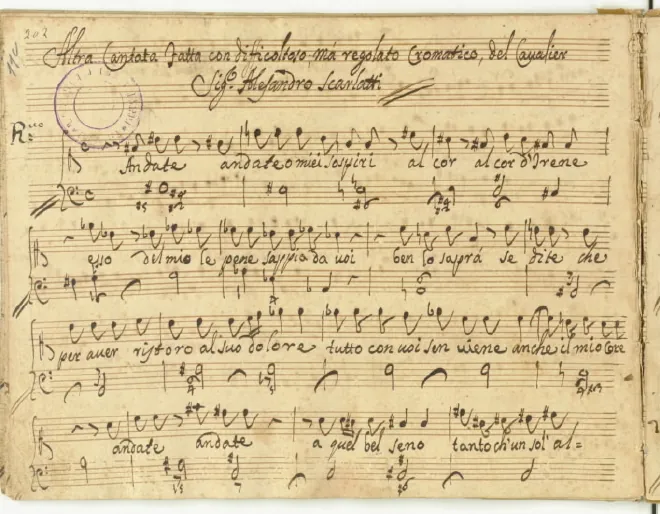 202
Altra Cantata Fatta con difficoltoso mà regolato Cromatico, del Cavalier
Sigr. Alesandro Scarlatti
Andate andate o miei sospiri al cor al cor d'Irene
esso del mio le pene sappia da voi ben lo saprà se dite che
per aver ristoro al suo dolore tutto con voi sen viene anche il mio Core
andate andate a quel bel seno tanto ch'un sol' al=